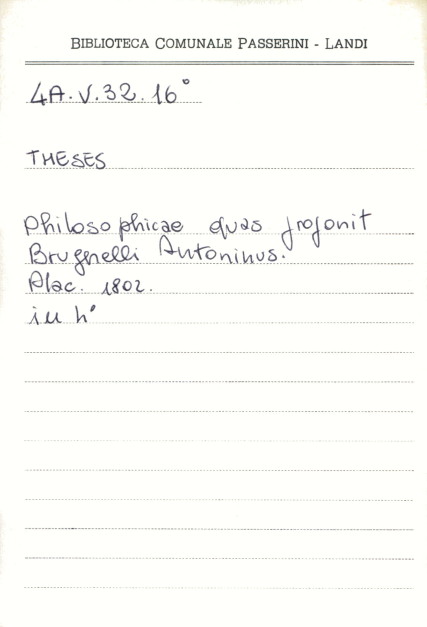 BIBLIOTECA COMUNALE PASSERINI - LANDI
4A.V.32.16°
THESES
Philosophicae quas proponit
Brugnelli Antoninus.
Plac. 1802.
in 4°